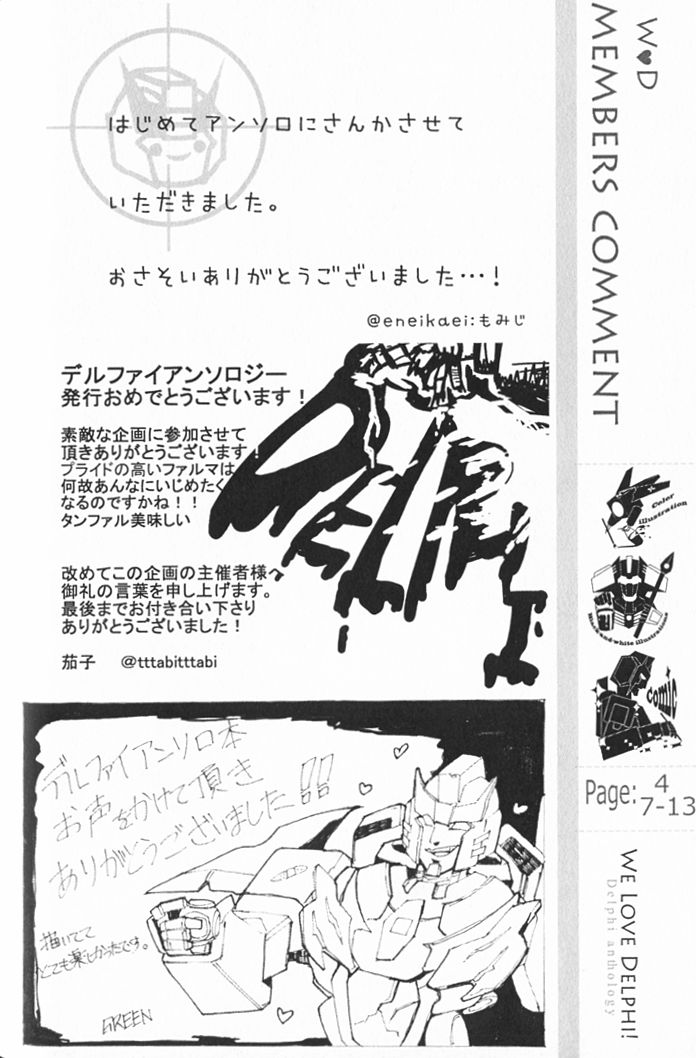 はじめてアンソロにさんかさせて
いただきました。
おさそいありがとうございました…！
@eneikaei:もみじ
デルファイアンソロジー
発行おめでとうございます！
素敵な企画に参加させて
頂きありがとうございます！
プライドの高いファルマは
何故あんなにいじめたく
なるのですかね！！
タンファル美味しい
改めてこの企画の主催者様へ
御礼の言葉を申し上げます。
最後までお付き合い下さり
ありがとうございました！
茄子　@tttabitttabi
デルファイアンソロ本
お声をかけて頂き
ありがとうございました!!
描いてて
とても楽しかったです。
GREEN
W♥D
MEMBERS COMMENT
Color
illustration
Black-and-white illustrations
Comic
Page: 4
7-13
WE LOVE DELPHI!
Delphi anthology